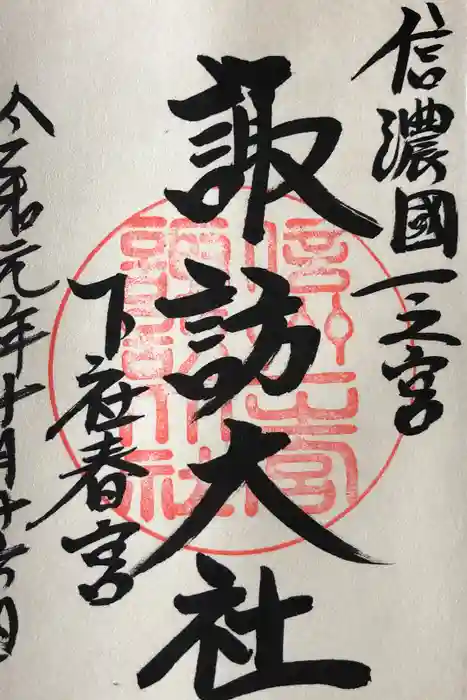 信濃國一之宮
諏訪大社
下社春宮
令和元年十月十六日